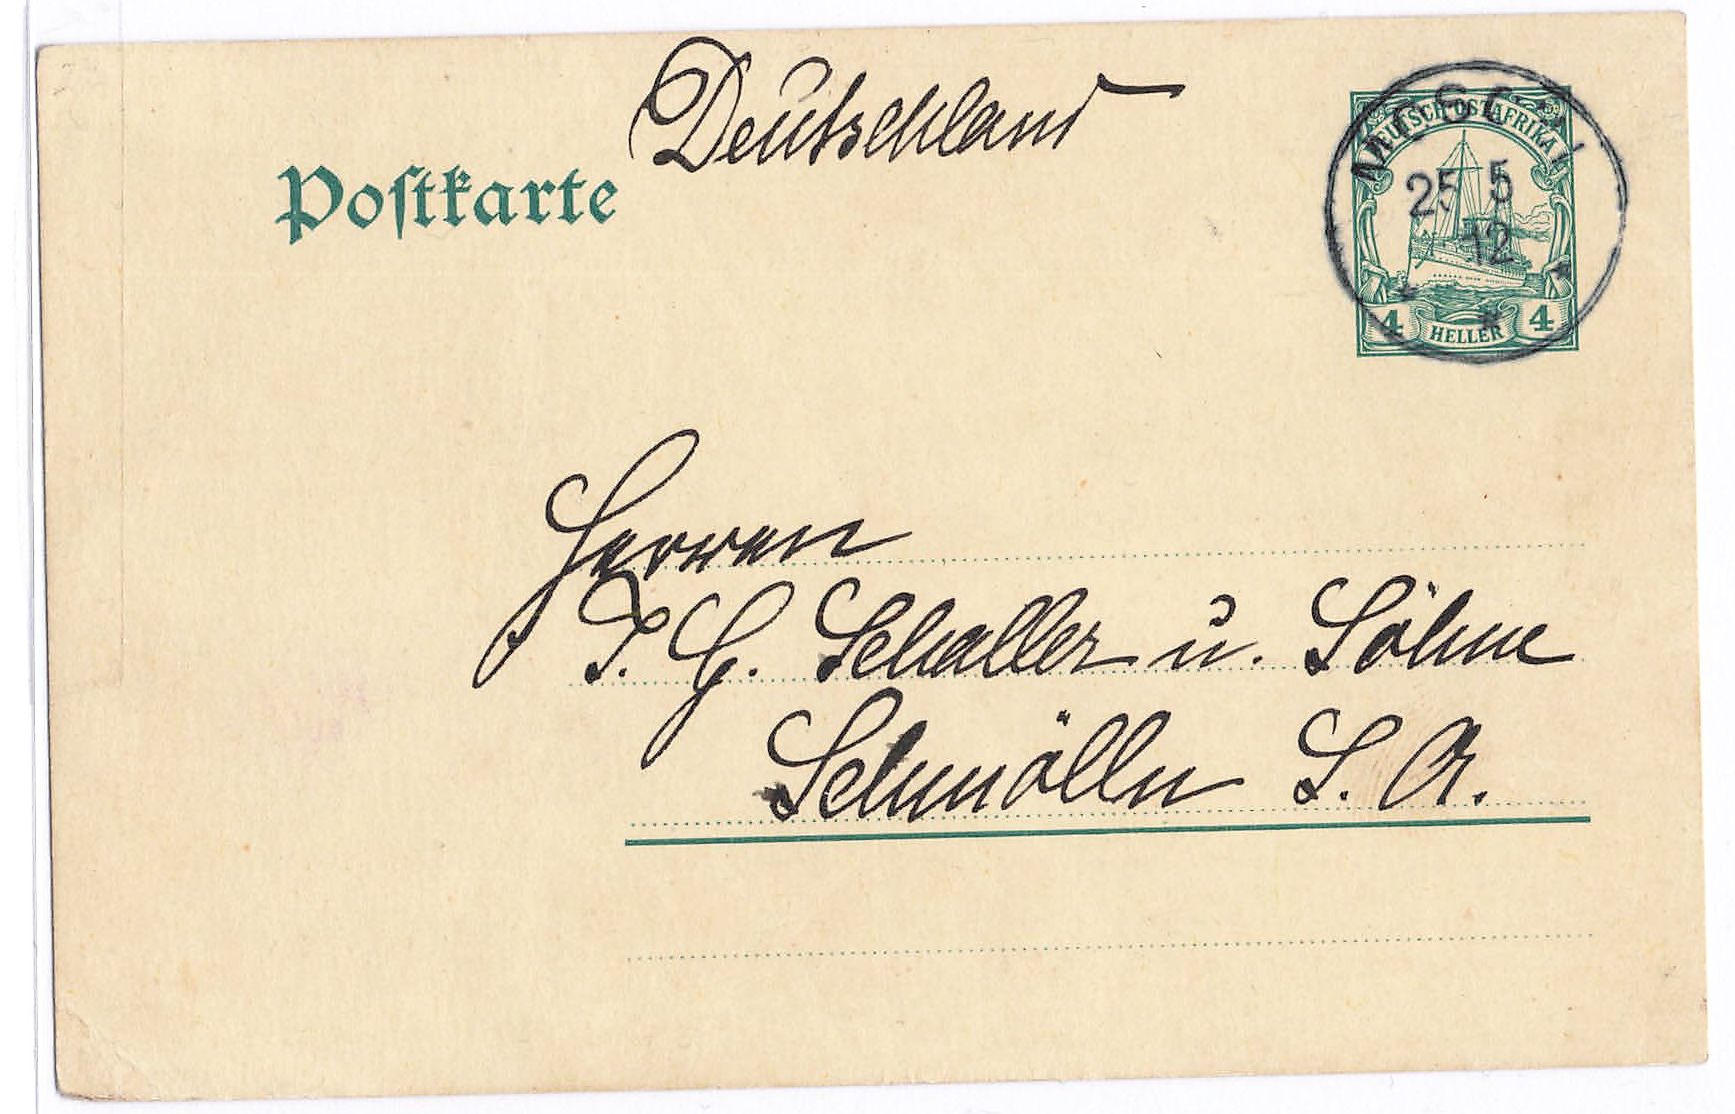 Deutschland
Postkarte
DEUTSCH-OSTAFRIKA
25 5
12
4 HELLER 4
Herren
J. G. Schaller u. Söhne
Schmölln S. A.